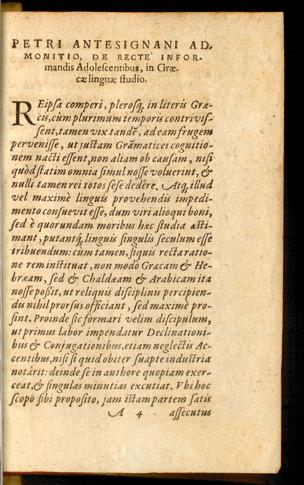 PETRI ANTESIGNANI AD-
MONITIO, DE RECTE INFOR-
mandis Adolescentibus, in Græ-
cæ linguæ studio.
REipsa comperi, plerosq, in literis Græ-
cis, cùm plurimum temporis contrivis-
sent, tamen vix tandē, ad eam frugem
pervenisse, ut justam Grāmatices cognitio-
nem nacti essent, non aliam ob causam, nisi
quòd statim omnia simul nosse voluerint, &
nulli tamen rei totos sese dedêre. Atq, illud
vel maximè linguis provehendis impedi-
mento consuevit esse, dum viri alioqui boni,
sed è quorundam moribus hæc studia æsti-
mant, putantq, linguis singulis seculum esse
tribuendum: cùm tamen, siquis recta ratio-
ne rem instituat, non modò Græcam & He-
bræam, sed & Chaldæam & Arabicam ita
nosse possit, ut reliquis disciplinis percipien-
dis nihil prorsus officiant, sed maximè pro-
sint. Proinde sic formari velim discipulum,
ut primus labor impendatur Declinationi-
bus & Conjugationibus, etiam neglectis Ac-
centibus, nisi si quid obiter suapte industria
notârit: deinde se in authore quopiam exer-
ceat, & singulas minutias excutiat. Vbi hoc
scopo sibi proposito, jam istam partem satis
A 4 assecutus